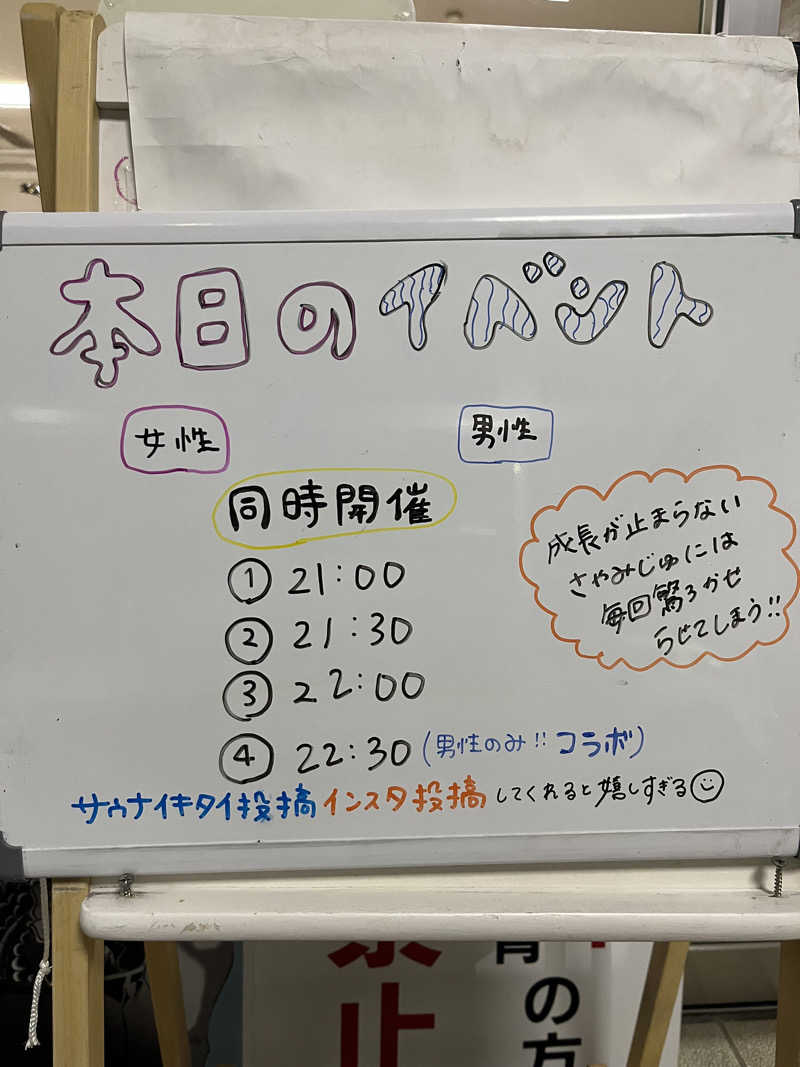 本日のイベント
女性
男性
同時開催
① 21:00
② 21:30
③ 22:00
④ 22:30 (男性のみ!! コラボ)
成長が止まらない
さやみじゅには
毎回驚ろかせ
らせてしまう!!
サウナイキタイ投搞 インスタ投搞 してくれると嬉しすぎる
禁止
の方